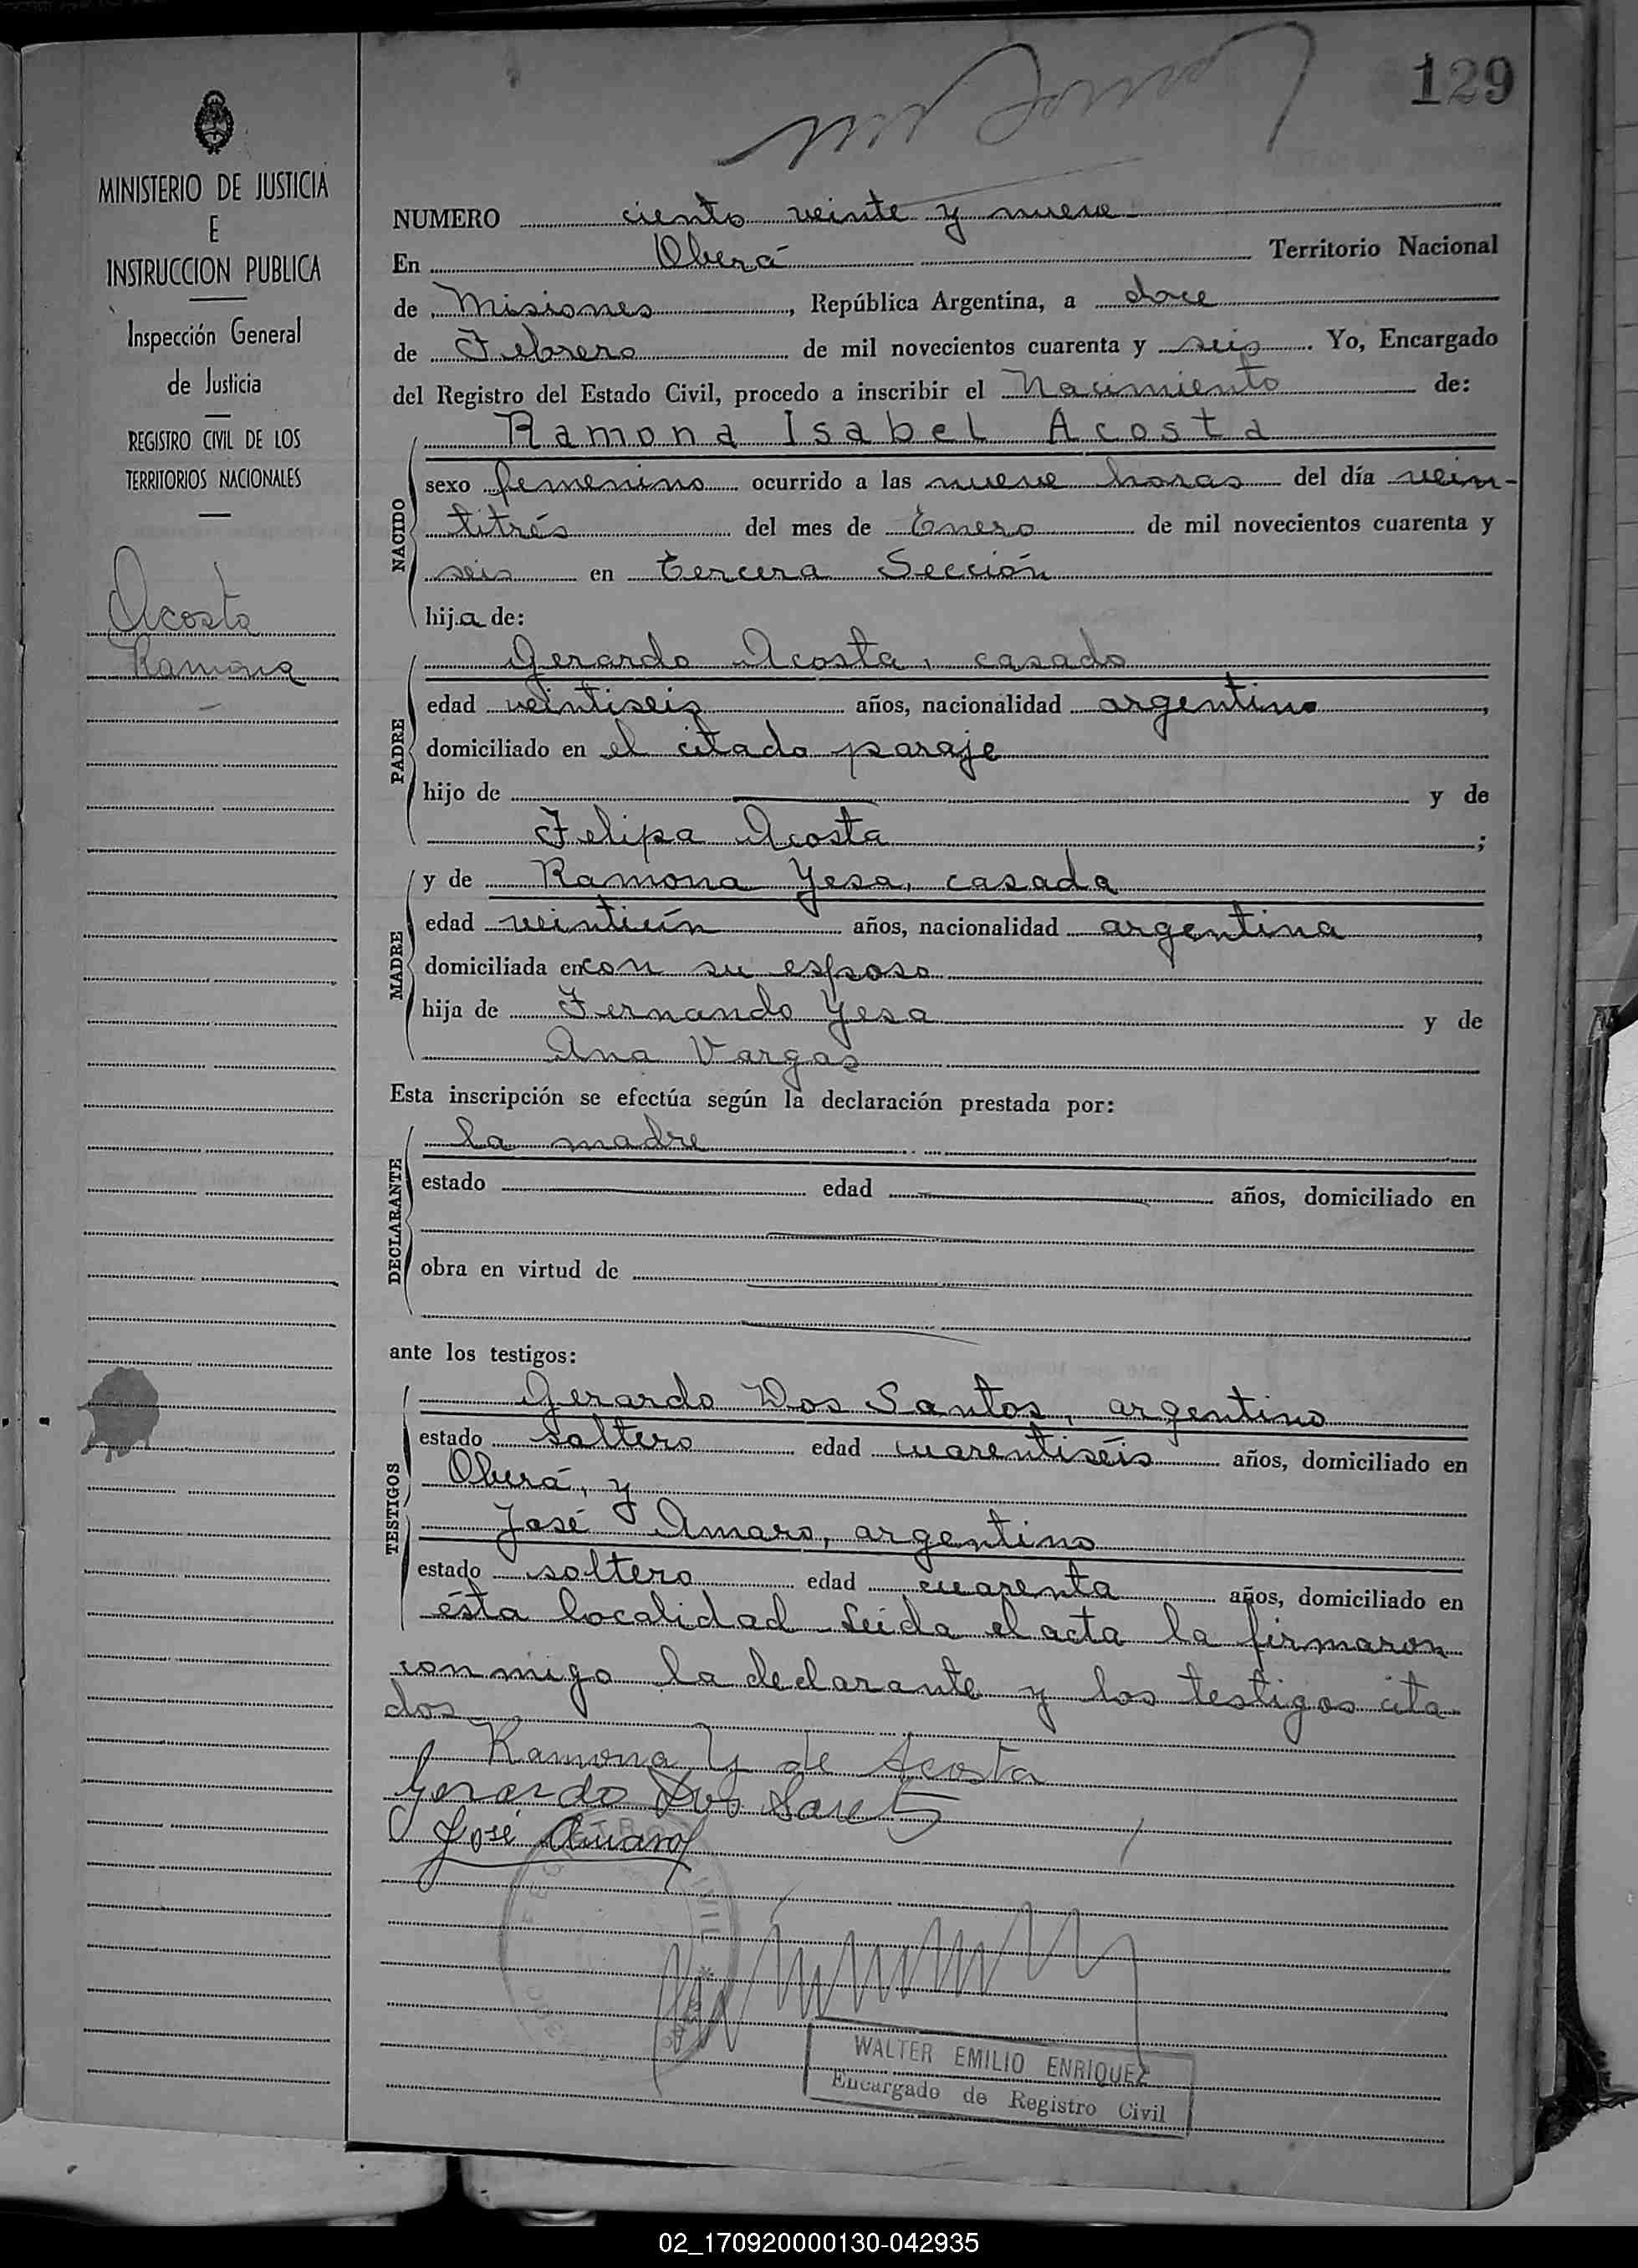 129
MINISTERIO DE JUSTICIA
E
INSTRUCCION PUBLICA
Inspección General
de Justicia
REGISTRO CIVIL DE LOS
TERRITORIOS NACIONALES
Acosta
Ramona
NUMERO ciento veinte y nueve
En Oberá Territorio Nacional
de Misiones, República Argentina, a doce
de Febrero de mil novecientos cuarenta y seis. Yo, Encargado
del Registro del Estado Civil, procedo a inscribir el Nacimiento de:
NACIDO
Ramona Isabel Acosta
sexo femenino ocurrido a las nueve horas del día vein-
titrés del mes de Enero de mil novecientos cuarenta y
seis en tercera Sección
hija de:
PADRE
Gerardo Acosta, casado
edad veintiseis años, nacionalidad argentino,
domiciliado en el citado paraje
hijo de y de
Felipa Acosta;
MADRE
y de Ramona Yesa, casada
edad veintiún años, nacionalidad argentina,
domiciliada en con su esposo
hija de Fernando Yesa y de
Ana Vargas
Esta inscripción se efectúa según la declaración prestada por:
DECLARANTE
la madre
estado edad años, domiciliado en
obra en virtud de
ante los testigos:
TESTIGOS
Gerardo Dos Santos, argentino
estado soltero edad cuarentiséis años, domiciliado en
Oberá, y
José Amaro, argentino
estado soltero edad cuarenta años, domiciliado en
ésta localidad. Leida el acta la firmaron
conmigo la declarante y los testigos cita
dos
Ramona Y de Acosta
Gerardo Dos Sant
José Amaro
WALTER EMILIO ENRIQUEZ
Encargado de Registro Civil
02_170920000130-042935